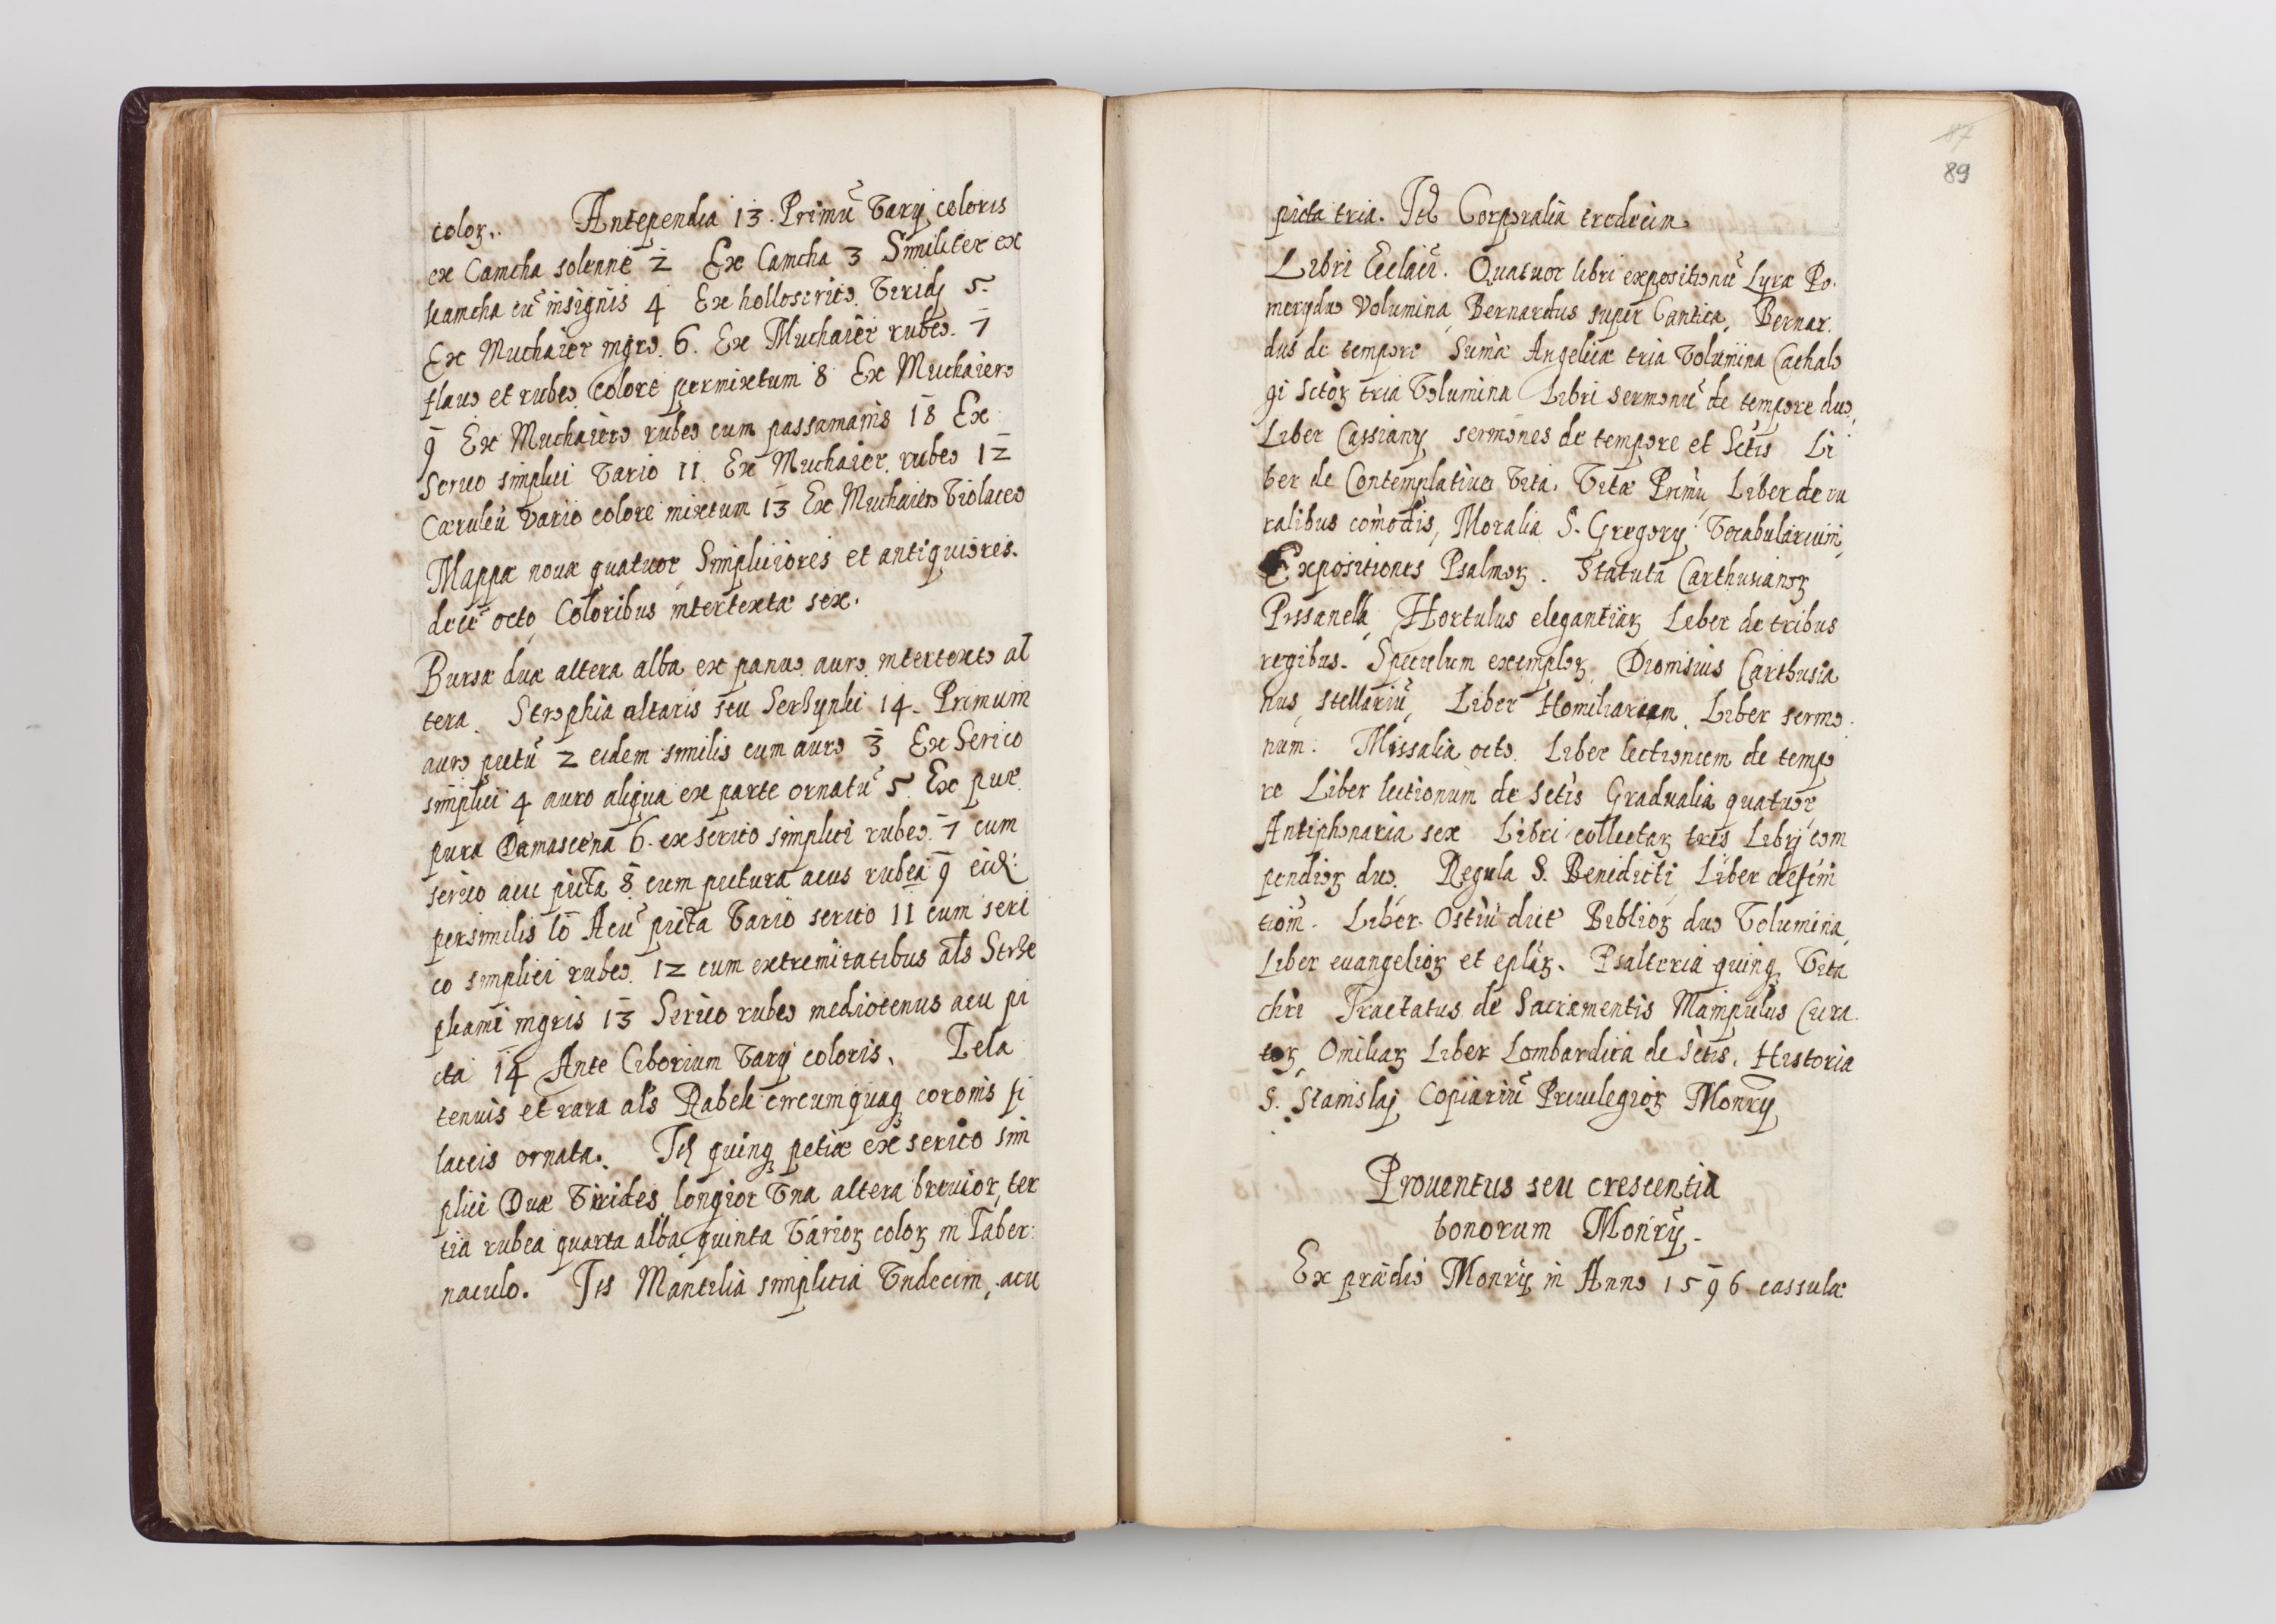 coloꝝ. Antependia 13. Primũ Varij coloris
ex Camcha solenne 2 Ex Camcha 3 Similiter ex
kamcha cũ insignis 4 Ex holloserico Viridj 5.
Ex Muchaier nigro. 6. Ex Muchaier rubeo. 7
flauo et rubeo colore permixtum 8 Ex Muchaiero
9 Ex Muchaiero rubeo cum passamanis 18 Ex
Serico simplici Vario 11. Ex Muchaier. rubeo 12
Cæruleũ Vario colore mixtum 13 Ex Muchaiero Violaceo
Mappæ nouæ quatuor Simpliciores et antiquiores.
decẽ octo Coloribus intertextæ sex.
Bursæ duæ altera alba ex panno auro intertexto al
tera Strophia altaris seu Serhynki 14. Primum
auro pictũ 2 eidem similis cum auro 3 Ex Serico
simplici 4 auro aliqua ex parte ornatũ 5. Ex pur
pura Damascena 6. ex serico simplici rubeo. 7 cum
serico acu picta 8 cum pictura acus rubea 9 eid:
persimilis 10 Acu picta Vario serico 11 cum seri
co simplici rubeo. 12 cum extremitatibus als Strze
pkami nigris 13 Serico rubeo mediotenus acu pi
cta 14 Ante Ciborium Varij coloris. Tela
tenuis et rara als Rabek circumquaq coronis fi
laceis ornata. Itẽ quinq petiæ ex serico sim
plici Duæ Virides longior Vna altera breuior, ter
tia rubea quarta alba quinta Varioꝝ coloꝝ in Taber:
naculo. Itẽ Mantilia simplicia Vndecim, acu
87
89
picta tria. Itẽ Corporalia tredecim
Libri Ecclaiũ. Quatuor libri expositionũ Lyræ Po.
merydno Volumina Bernardus super Cantica, Bernar.
dus de tempore Suma Angelicæ tria Volumina Cathalo
gi Sctoꝝ tria Volumina Libri Sermonũ de tempore duo,
Liber Cassiany sermones de tempore et Sctis Li
ber de Contemplatiua Vita. Vitæ Primũ Liber de ru
ralibus comodis, Moralia S. Gregorij Vocabularium,
Expositiones Psalmoꝝ. Statuta Carthusianoꝝ
Pissanella Hortulus elegantiaꝝ Liber de tribus
regibus. Speculum exemploꝝ. Dionisius Carthusia
nus, stellariũ, Liber Homiliarum. Liber sermo
num: Missalia octo. Liber lectionum de tempo
re Liber lectionum de Sctis Gradualia quatuor,
Antiphonaria sex Libri collectaꝝ tres Librj com
pendioꝝ duo. Regula S. Benedicti Liber defini
tiom. Liber Ostiũ dict Biblioꝝ duo Volumina,
Liber euangelioꝝ et eplaꝝ. Psalteria quinq Vita
chri Tractatus de Sacramentis Manipulus Cura
toꝝ, Omiliaꝝ Liber Lombardica de Sctis. Historia
S. Stanislaj Copiariũ Priuilegioꝝ Monrij
Prouentus seu crescentia
bonorum Monrij.
Ex prædio Monrij in Anno 1596 cassulæ